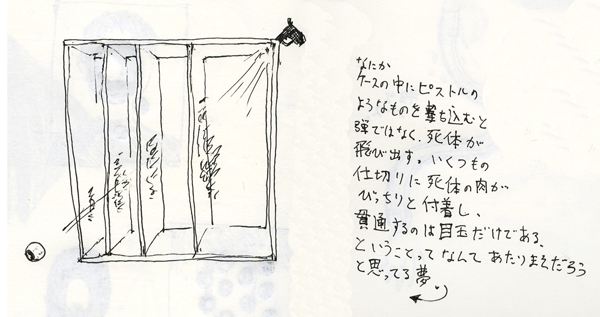 なにか
ケースの中にピストルの
ようなものを撃ち込むと
弾ではなく、死体が
飛び出す。いくつもの
仕切りに死体の肉が
びっちりと付着し、
貫通するのは目玉だけである、
ということってなんて あたりまえだろう
と思ってる夢。